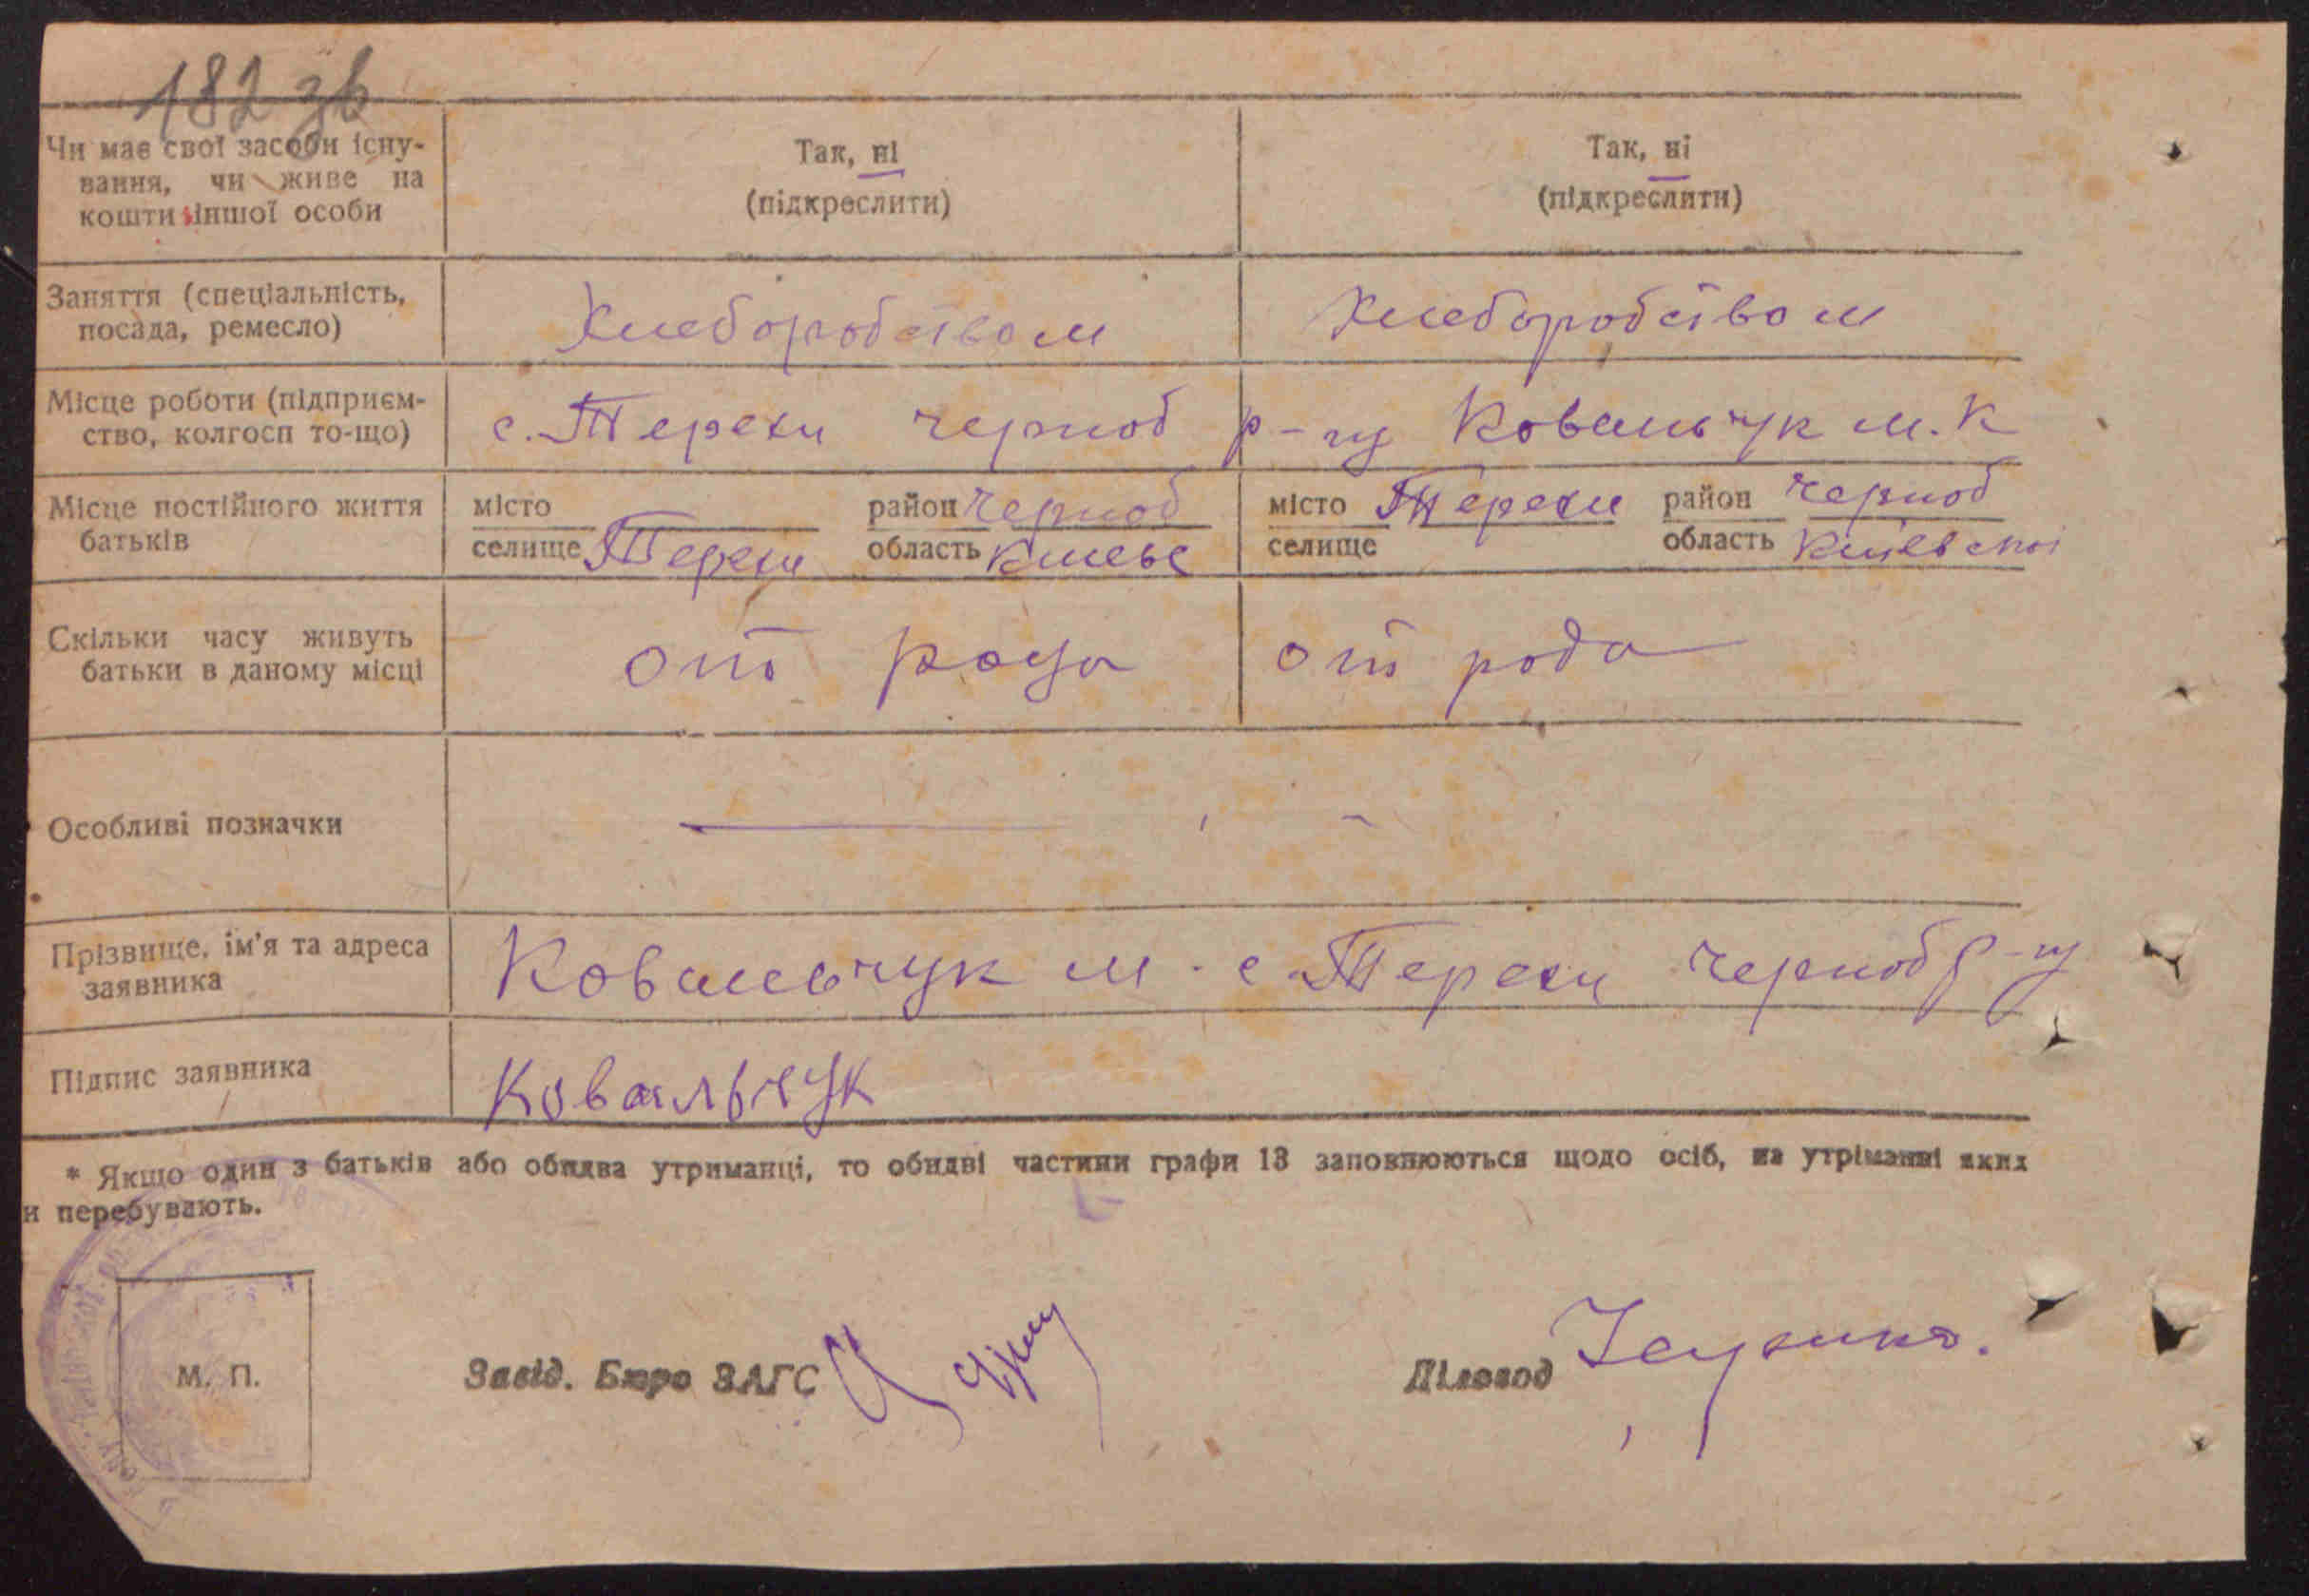 182 зв
Чи має свої засоби існу-
вання, чи живе на
кошти іншої особи
Так, ні
(підкреслити)
Так, ні
(підкреслити)
Заняття (спеціальність,
посада, ремесло)
Хлеборобством
Хлеборобством
Місце роботи (підприєм-
ство, колгосп то-що)
с. Терехи черноб р-ну Ковальчук М. К
Місце постійного життя
батьків
місто
район Черноб
селище Терехи
область Киевс
місто Терехи
район Черноб
селище
область Киевской
Скільки часу живуть
батьки в даному місці
от рода
от рода
Особливі позначки
Прізвище, ім'я та адреса
заявника
Ковальчук М. с. Терехи Черноб р-ну
Підпис заявника
Ковальчук
* Якщо один з батьків або обидва утриманці, то обидві частини графи 13 заповнюються щодо осіб, на утріманні яких
и перебувають.
М. П.
Завід. Бюро ЗАГС
Діловод